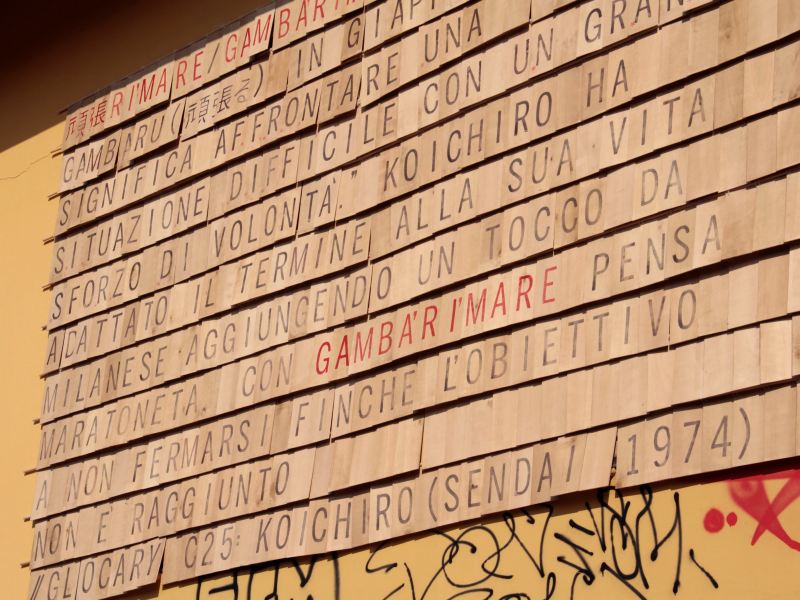 頑張RI'MARE/GAMBA'RI
GAMBARU (頑張る) IN GIAPP
SIGNIFICA AFFRONTARE UNA
SITUAZIONE DIFFICILE CON UN GRAN
SFORZO DI VOLONTA'." KOICHIRO HA
ADATTATO IL TERMINE ALLA SUA VITA
MILANESE AGGIUNGENDO UN TOCCO DA
MARATONETA. CON GAMBA'RI'MARE PENSA
A NON FERMARSI FINCHE L'OBIETTIVO
NON E' RAGGIUNTO
//GLOCARY C25: KOICHIRO (SENDAI 1974)